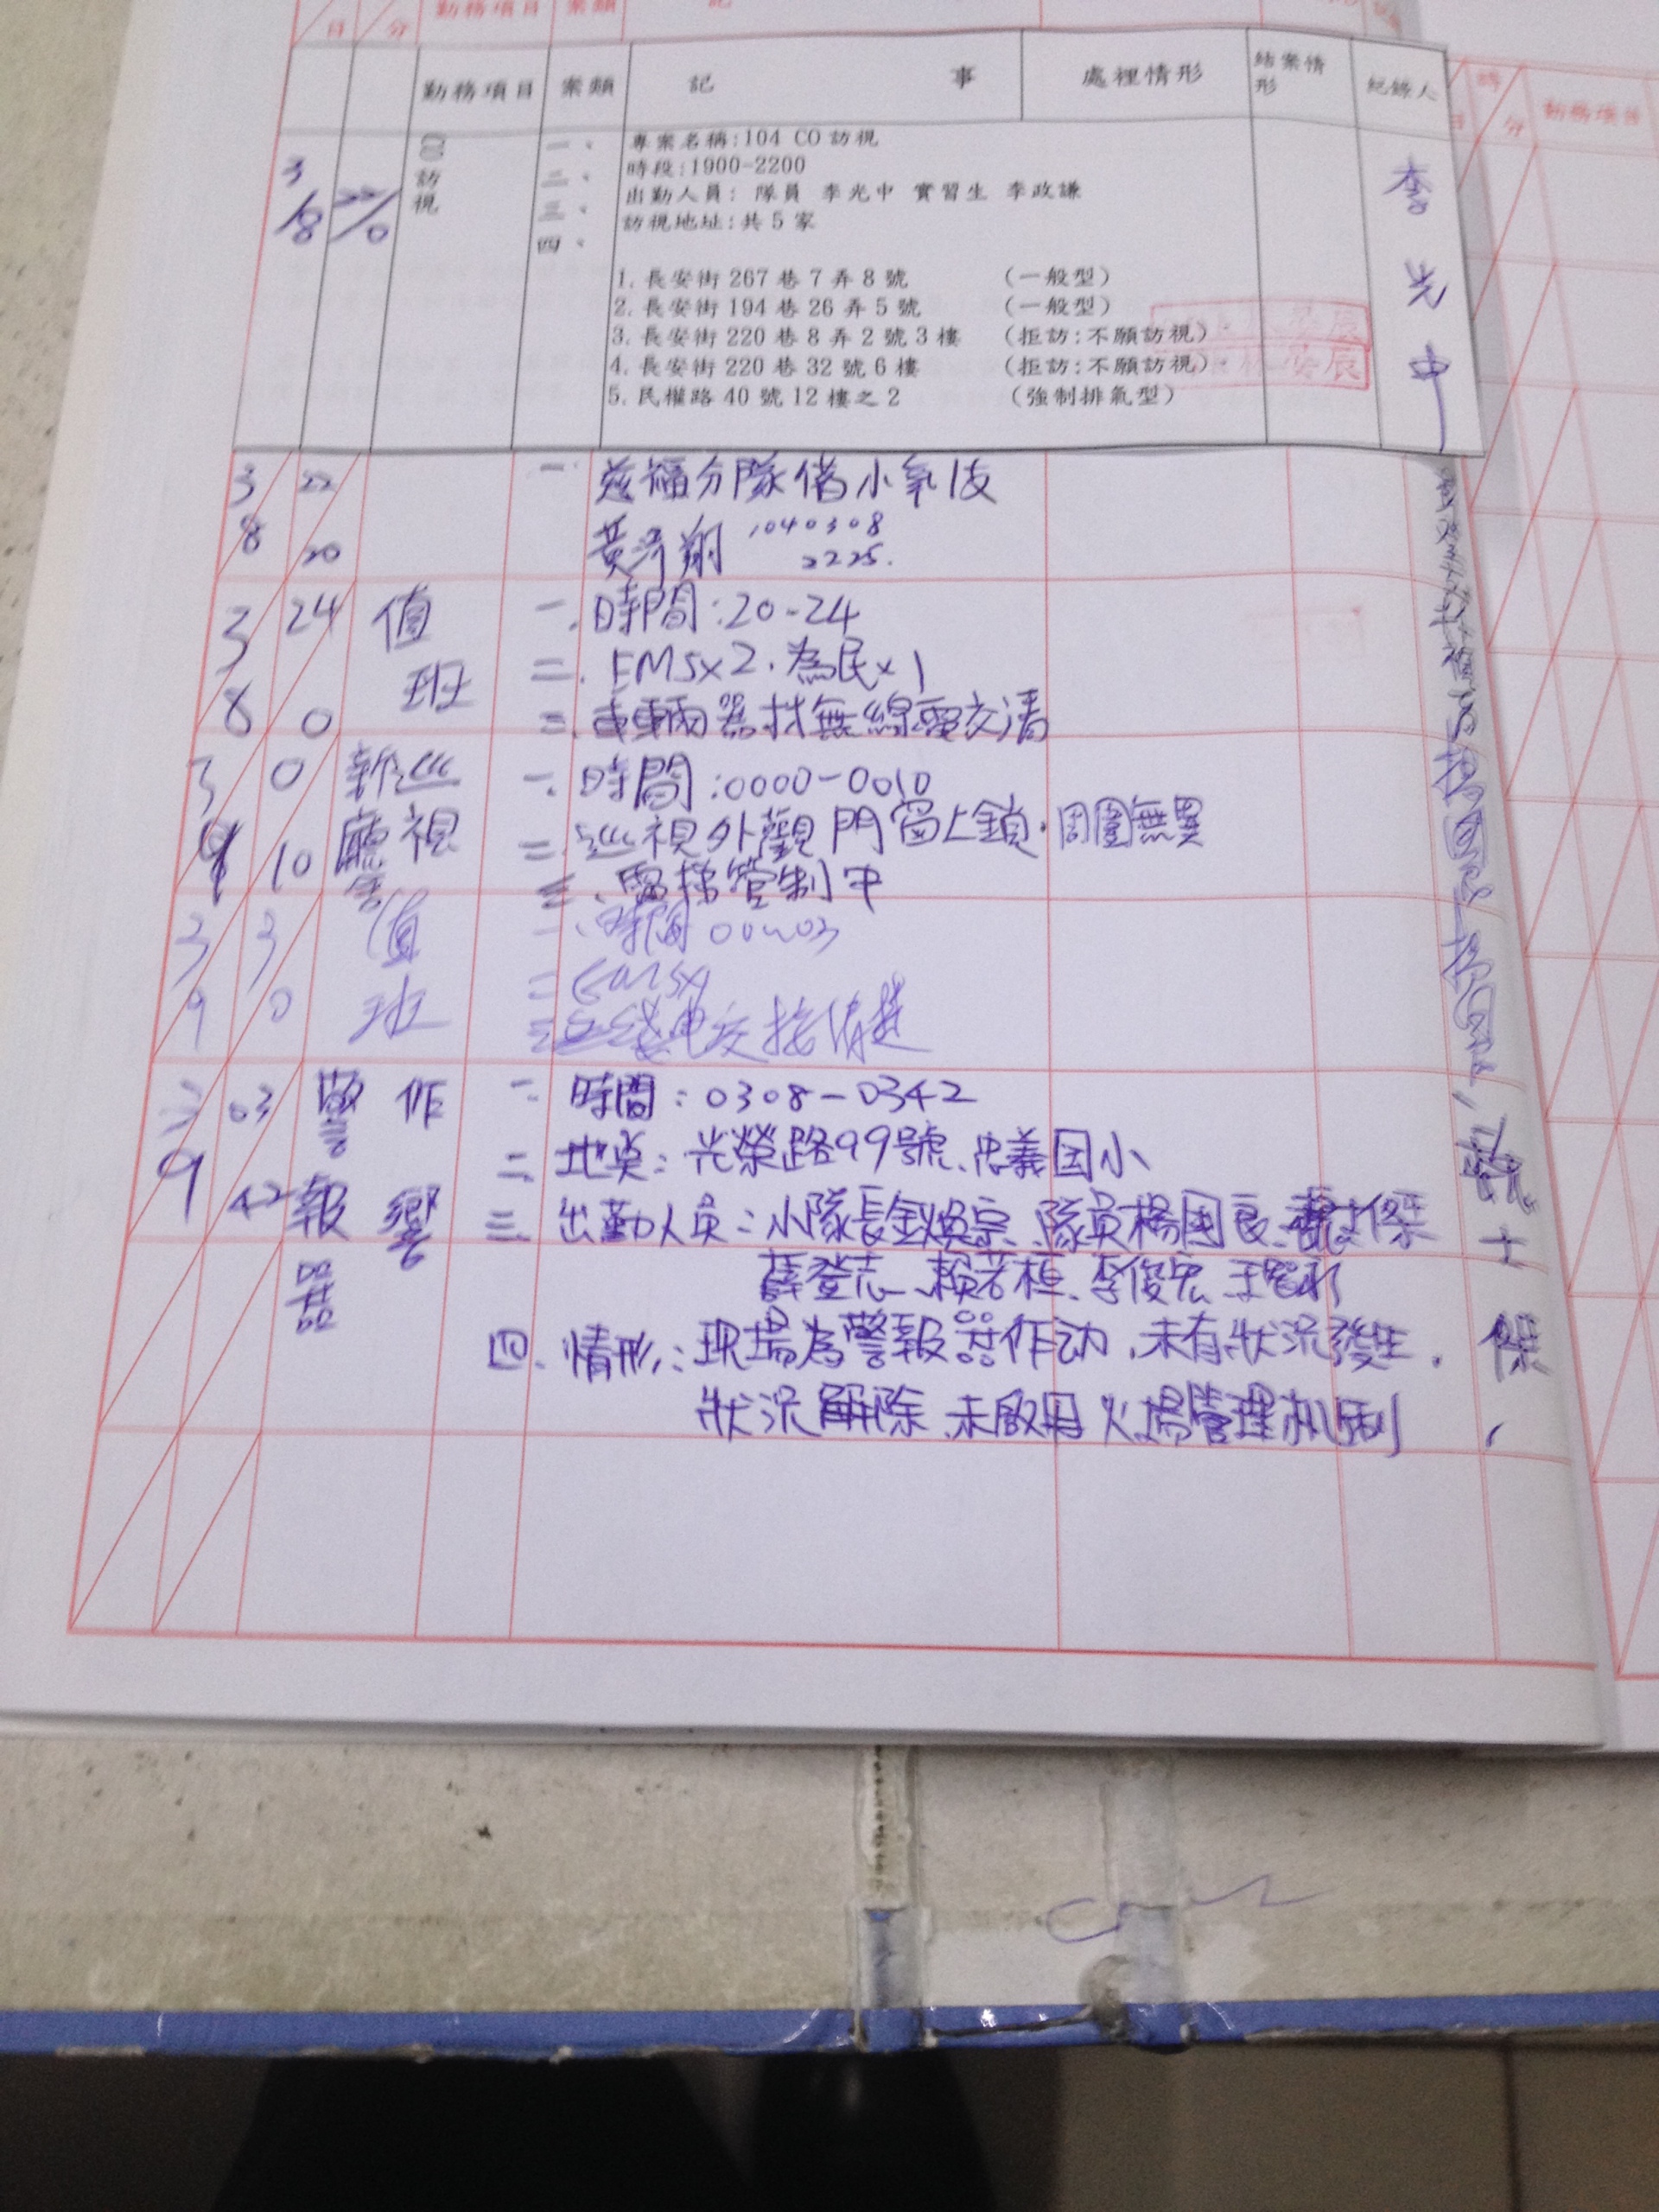 日 分 勤務項目 案類 記
勤務項目 案類 記 事 處裡情形 結案情形 紀錄人
3/8 22/0 CO訪視
一、專案名稱:104 CO 訪視
二、時段:1900-2200
三、出勤人員: 隊員 李光中 實習生 李政謙
四、訪視地址:共 5 家
1. 長安街 267 巷 7 弄 8 號 (一般型)
2. 長安街 194 巷 26 弄 5 號 (一般型)
3. 長安街 220 巷 8 弄 2 號 3 樓 (拒訪:不願訪視)
4. 長安街 220 巷 32 號 6 樓 (拒訪:不願訪視)
5. 民權路 40 號 12 樓之 2 (強制排氣型)
李光中
3/8 22/20 一. 慈福分隊借小氧1支
1040308
2225.
3/8 24/0 值班 一. 時間:20-24
二. EMSx2. 為民x1
三. 車輛器材無線電交清
3/9 0/10 新廳舍巡視 一. 時間:0000-0010
二. 巡視外觀門窗上鎖. 周圍無異
三. 電梯管制中
3/9 3/0 值班 一. 時間00~03
二. EMSx
3/9 03/42 警報器作響 一. 時間:0308-0342
二. 地點:光榮路99號、忠義国小
三. 出勤人員:小隊長 隊員楊國良
薛登志、賴若桓、李俊宏
四. 情形:現場為警報器作动,未有狀況發生.
狀況解除,未啟用火場管理机制
時 分 勤務項目